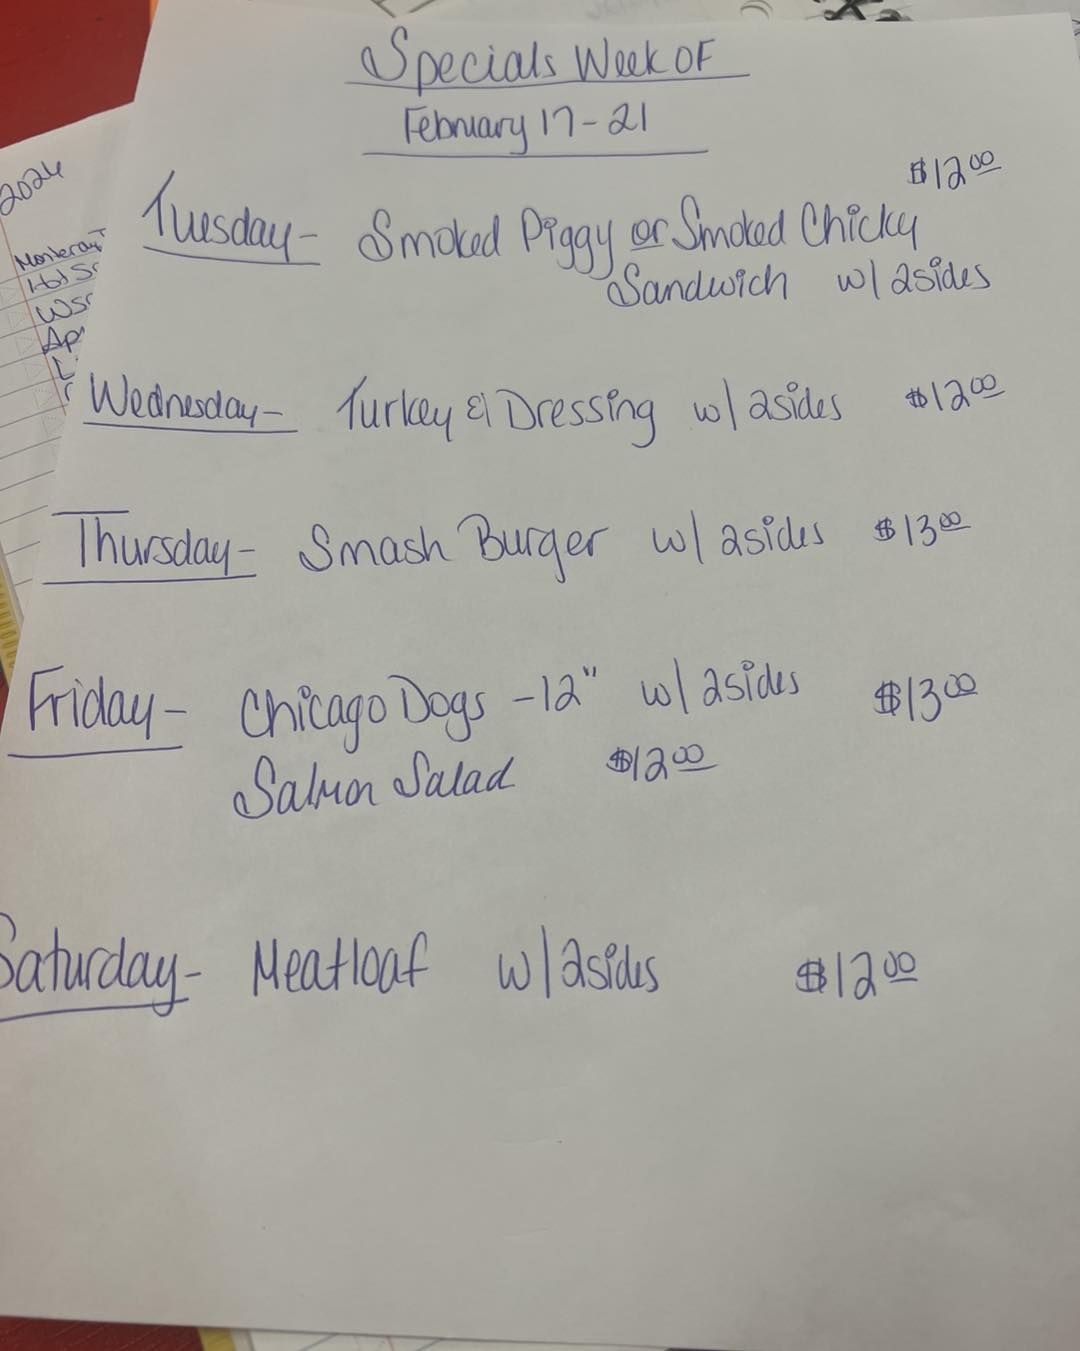 Specials Week OF
February 17-21
$12.00
Tuesday- Smoked Piggy or Smoked Chicky
Sandwich w/ 2sides
Wednesday- Turkey & Dressing w/ 2sides $12.00
Thursday- Smash Burger w/ 2sides $13.00
Friday- Chicago Dogs -12" w/ 2sides $13.00
Salmon Salad $12.00
Saturday- Meatloaf w/ 2sides $12.00